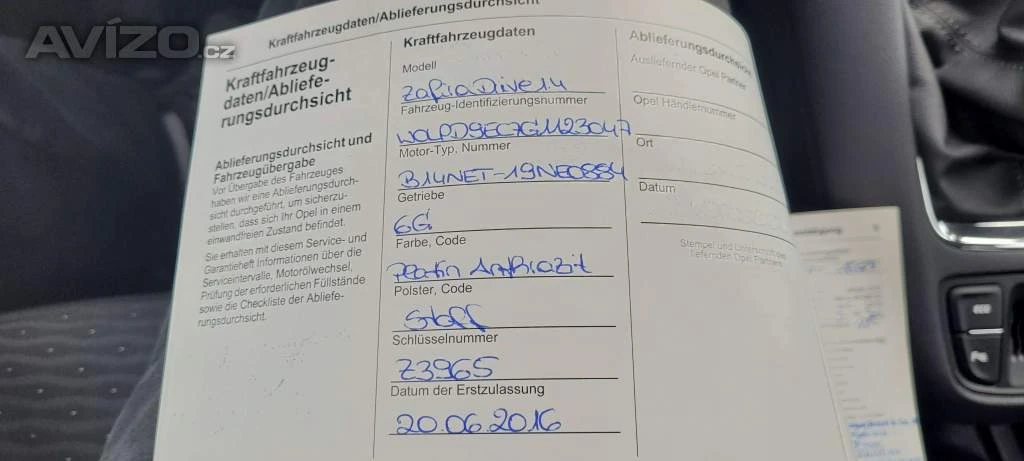 AVÍZO.cz
Kraftfahrzeugdaten/Ablieferungsdurchsicht
Kraftfahrzeug-
daten/Abliefe-
rungsdurchsicht
Ablieferungsdurchsicht und
Fahrzeugübergabe
Vor Übergabe des Fahrzeuges
haben wir eine Ablieferungsdurch-
sicht durchgeführt, um sicherzu-
stellen, dass sich Ihr Opel in einem
einwandfreien Zustand befindet.
Sie erhalten mit diesem Service- und
Garantieheft Informationen über die
Serviceintervalle, Motorölwechsel,
Prüfung der erforderlichen Füllstände
sowie die Checkliste der Abliefe-
rungsdurchsicht.
Kraftfahrzeugdaten
Modell
Zafira Drive 1.4
Fahrzeug-Identifizierungsnummer
W0LPD9EC7G1123047
Motor-Typ, Nummer
B14NET-19NE0884
Getriebe
6G
Farbe, Code
Platin Anthrazit
Polster, Code
Stoff
Schlüsselnummer
Z3965
Datum der Erstzulassung
20.06.2016
Ablieferungsdurchsicht
Ausliefernder Opel Partner
Opel Händlernummer
Ort
Datum
Stempel und Unterschrift des
liefernden Opel Partners
ECO